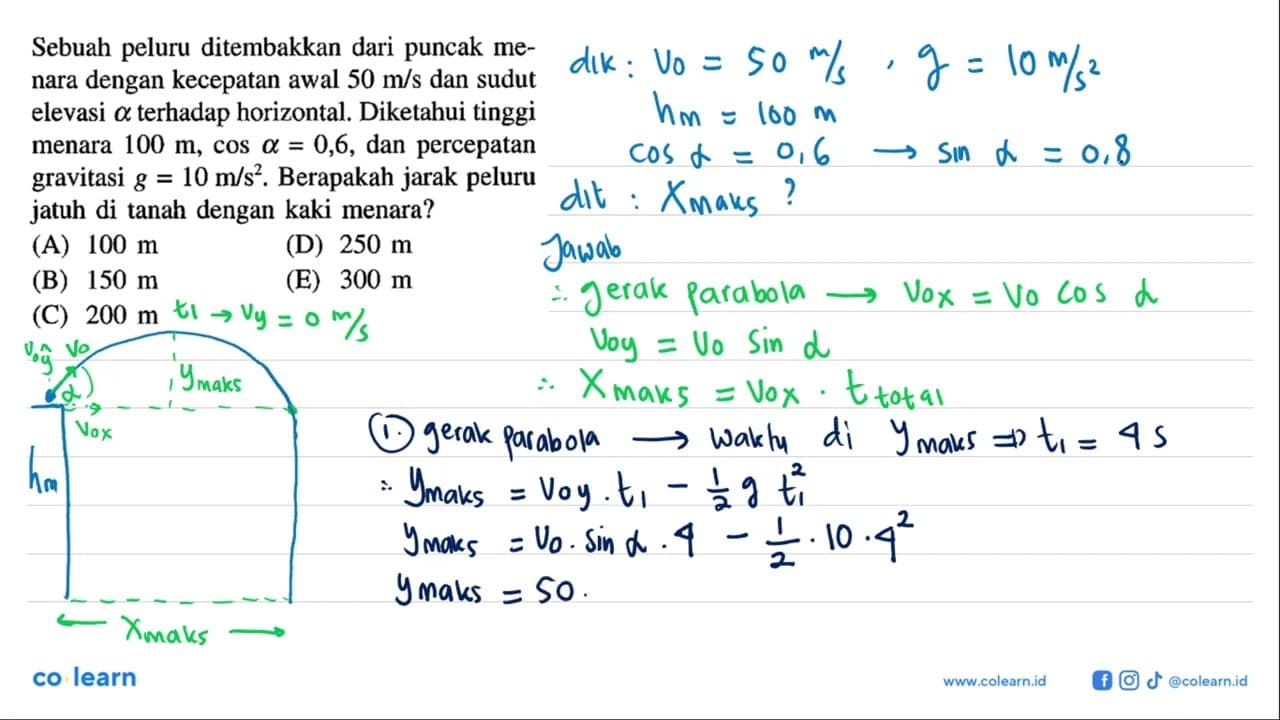 Sebuah peluru ditembakkan dari puncak me-
nara dengan kecepatan awal 50 m/s dan sudut
elevasi α terhadap horizontal. Diketahui tinggi
menara 100 m, cos α = 0,6, dan percepatan
gravitasi g = 10 m/s². Berapakah jarak peluru
jatuh di tanah dengan kaki menara?
(A) 100 m (D) 250 m
(B) 150 m (E) 300 m
(C) 200 m
t1 → Vy = 0 m/s
Voy Vo
α
Vox
ymaks
hm
← Xmaks →
dik : Vo = 50 m/s , g = 10 m/s²
hm = 100 m
cos α = 0,6 → sin α = 0,8
dit : Xmaks ?
Jawab
∴ gerak parabola → Vox = Vo cos α
Voy = Vo sin α
∴ Xmaks = Vox . t total
1. gerak parabola → waktu di ymaks ⇒ t1 = 4 s
∴ ymaks = Voy . t1 - 1/2 g t1²
ymaks = Vo . sin α . 4 - 1/2 . 10 . 4²
ymaks = 50 .
co learn
www.colearn.id
@colearn.id